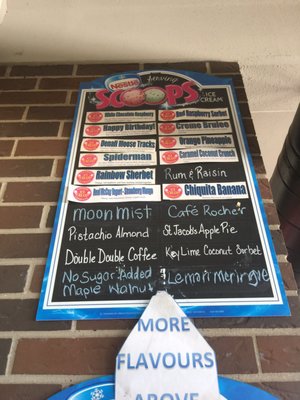 Nestlé
Serving
SCOOPS
ICE
CREAM
White Chocolate Raspberry
Red Raspberry Sherbet
Happy Birthday
Creme Brulee
Denali Moose Tracks
Orange Pineapple
Spiderman
Caramel Coconut Crunch
Rainbow Sherbet
Rum & Raisin
Chiquita Banana
Moon Mist
Café Rocher
Pistachio Almond
St. Jacobs Apple Pie
Double Double Coffee
Key Lime Coconut Sorbet
No Sugar Added
Maple Walnut
Lemon Meringue
MORE
FLAVOURS
ABOVE